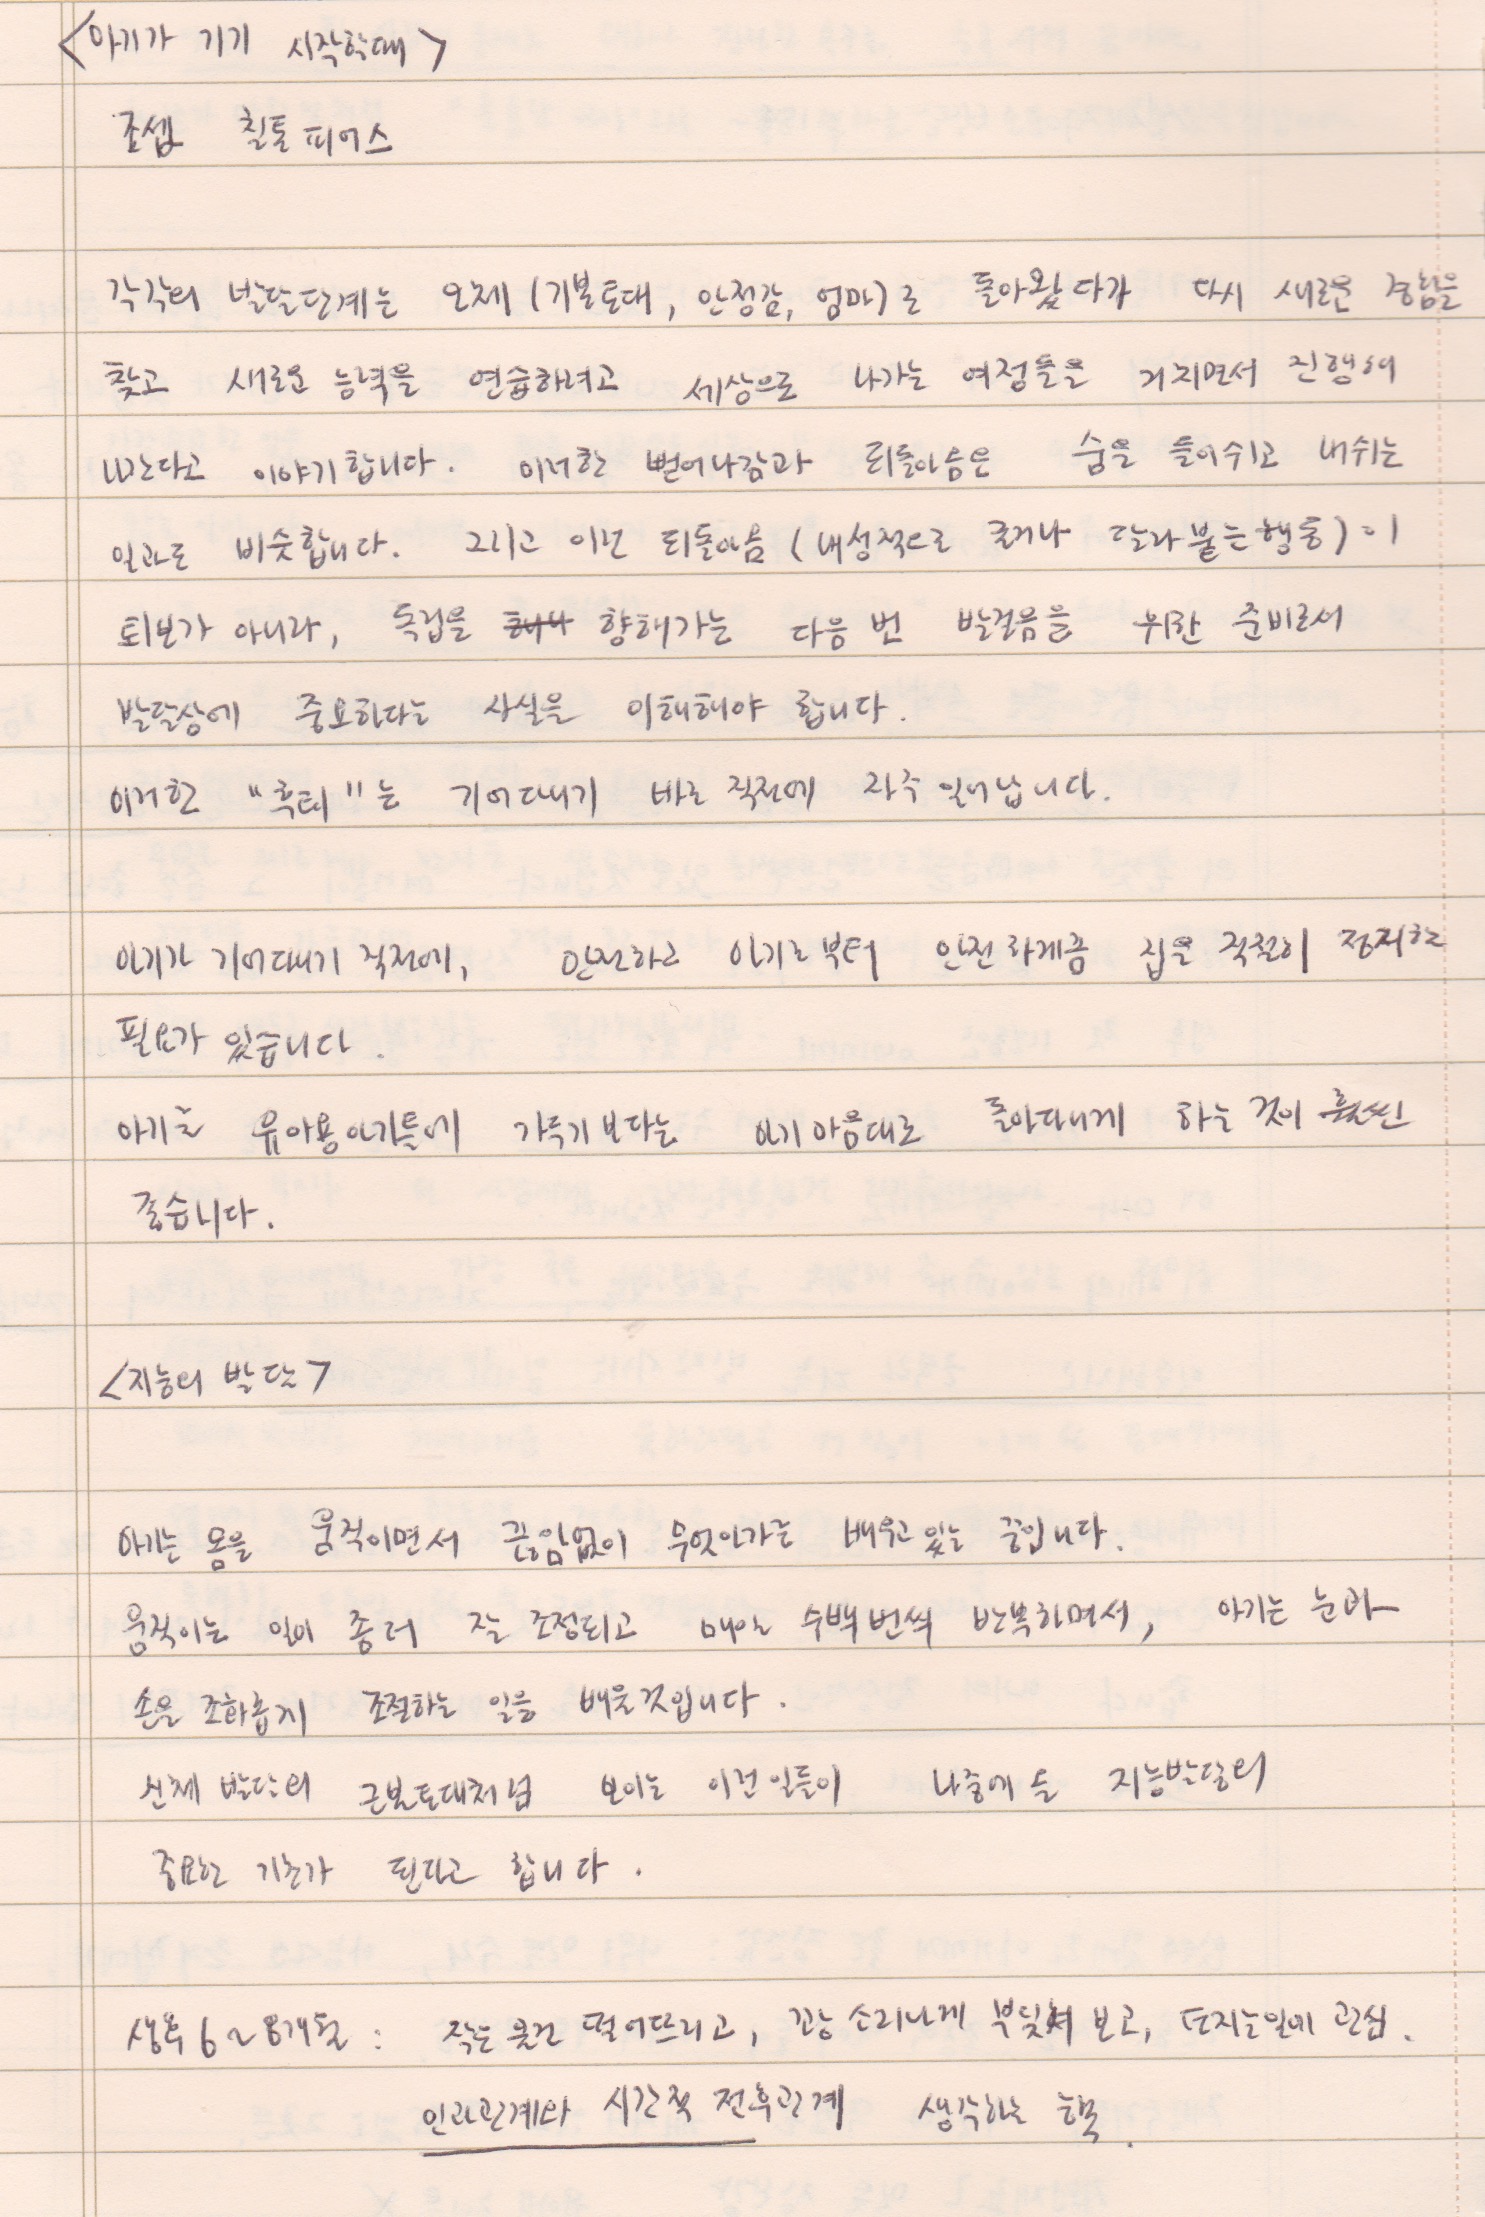 <아기가 기기 시작할때>
조셉 칠톤피어스
각각의 발달단계는 모체(기본토대, 안정감, 엄마)로 돌아왔다가 다시 새로운 경험을
찾고 새로운 능력을 연습하려고 세상으로 나가는 여정들을 거치면서 진행해
나간다고 이야기합니다. 이러한 뻗어나감과 되돌아옴은 숨을 들어쉬고 내쉬는
일과도 비슷합니다. 그리고 이런 되돌아옴(내성적으로 굴거나 달라붙는행동)이
퇴보가 아니라, 독립을 향해가는 다음번 발걸음을 위한 준비로서
발달상에 중요하다는 사실을 이해해야 합니다.
이러한 "후퇴"는 기어다니기 바로직전에 자주일어납니다.
아기가 기어다니기 직전에, 안전하고 아기로부터 안전하게끔 집을 적절히 정지할
필요가 있습니다.
아기를 유아용아기틀에 가두기보다는 아기마음대로 돌아다니게 하는것이 훨씬
좋습니다.
<지능의 발달>
아기는 몸을 움직이면서 끊임없이 무엇인가를 배우고있는 중입니다.
움직이는 일이 좀더 잘 조정되고 매일 수백번씩 반복하면서, 아기는 눈과
손을 조화롭게 조절하는 일을 배울것입니다.
신체발달의 근본토대처럼 보이는 이런일들이 나중에올 지능발달의
중요한 기초가 된다고 합니다.
생후 6~8개월 : 작은물건 떨어뜨리고, 꽝소리나게 부딪쳐보고, 던지는일에 관심.
인과관계와 시간적 전후관계 생각하는